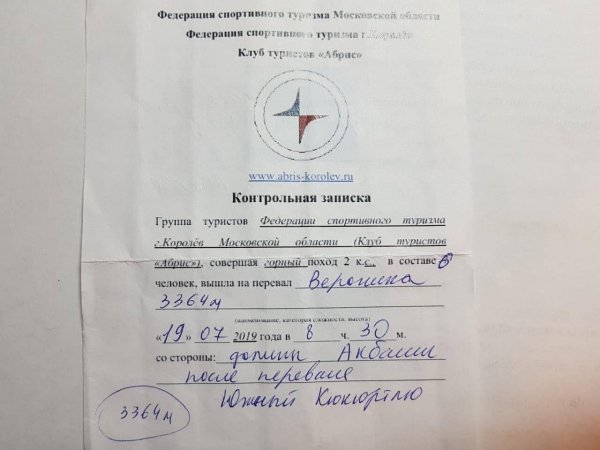 Федерация спортивного туризма Московской области
Федерация спортивного туризма г.Королёв
Клуб туристов «Абрис»
www.abris-korolev.ru
Контрольная записка
Группа туристов Федерации спортивного туризма
г.Королёв Московской области (Клуб туристов
«Абрис»), совершая горный поход 2 к.с., в составе 6
человек, вышла на перевал Вероника
3364м
(наименование, категория сложности, высота)
«19» 07 2019 года в 8 ч. 30 м.
со стороны: долины Акбаши
после перевала
Южный Кюкюртлю
3364м